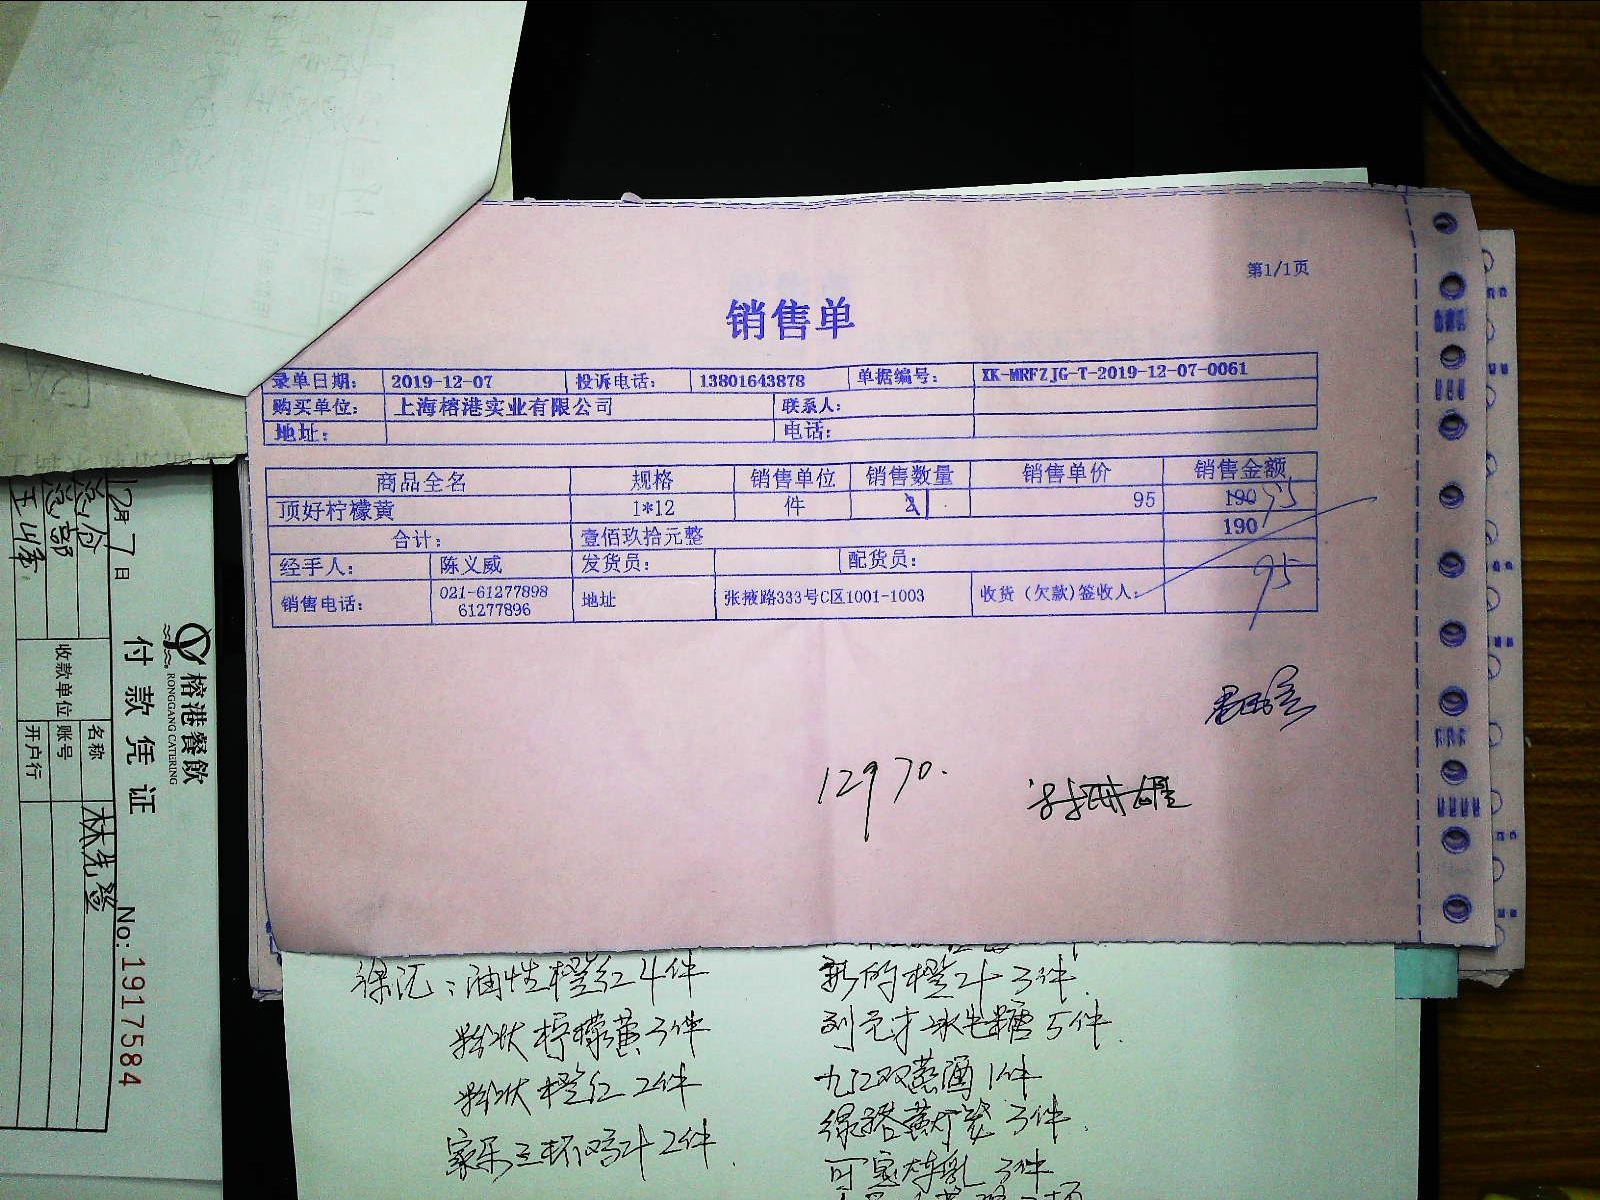 第1/1页
销售单
录单日期： 2019-12-07 投诉电话： 13801643878 单据编号： XK-MRFZJG-T-2019-12-07-0061
购买单位： 上海榕港实业有限公司 联系人：
地址： 电话：
商品全名 规格 销售单位 销售数量 销售单价 销售金额
顶好柠檬黄 1*12 件 1 95 190 95
合计： 壹佰玖拾元整 190
经手人： 陈义威 发货员： 配货员： 95
销售电话： 021-61277898 地址 张掖路333号C区1001-1003 收货(欠款)签收人：
61277896
12970.
徐汇：油性橙红4件
粉状柠檬黄3件
粉状橙红2件
家乐 鸡汁2件
新的橙汁3件
冰片糖5件
九江双蒸酒1件
3件
炼乳3件
榕港餐飲
RONGGANG CATERING
付款凭证
No: 1917584
12月7日
总仓
总部
收款单位
名称 林先登
账号
开户行